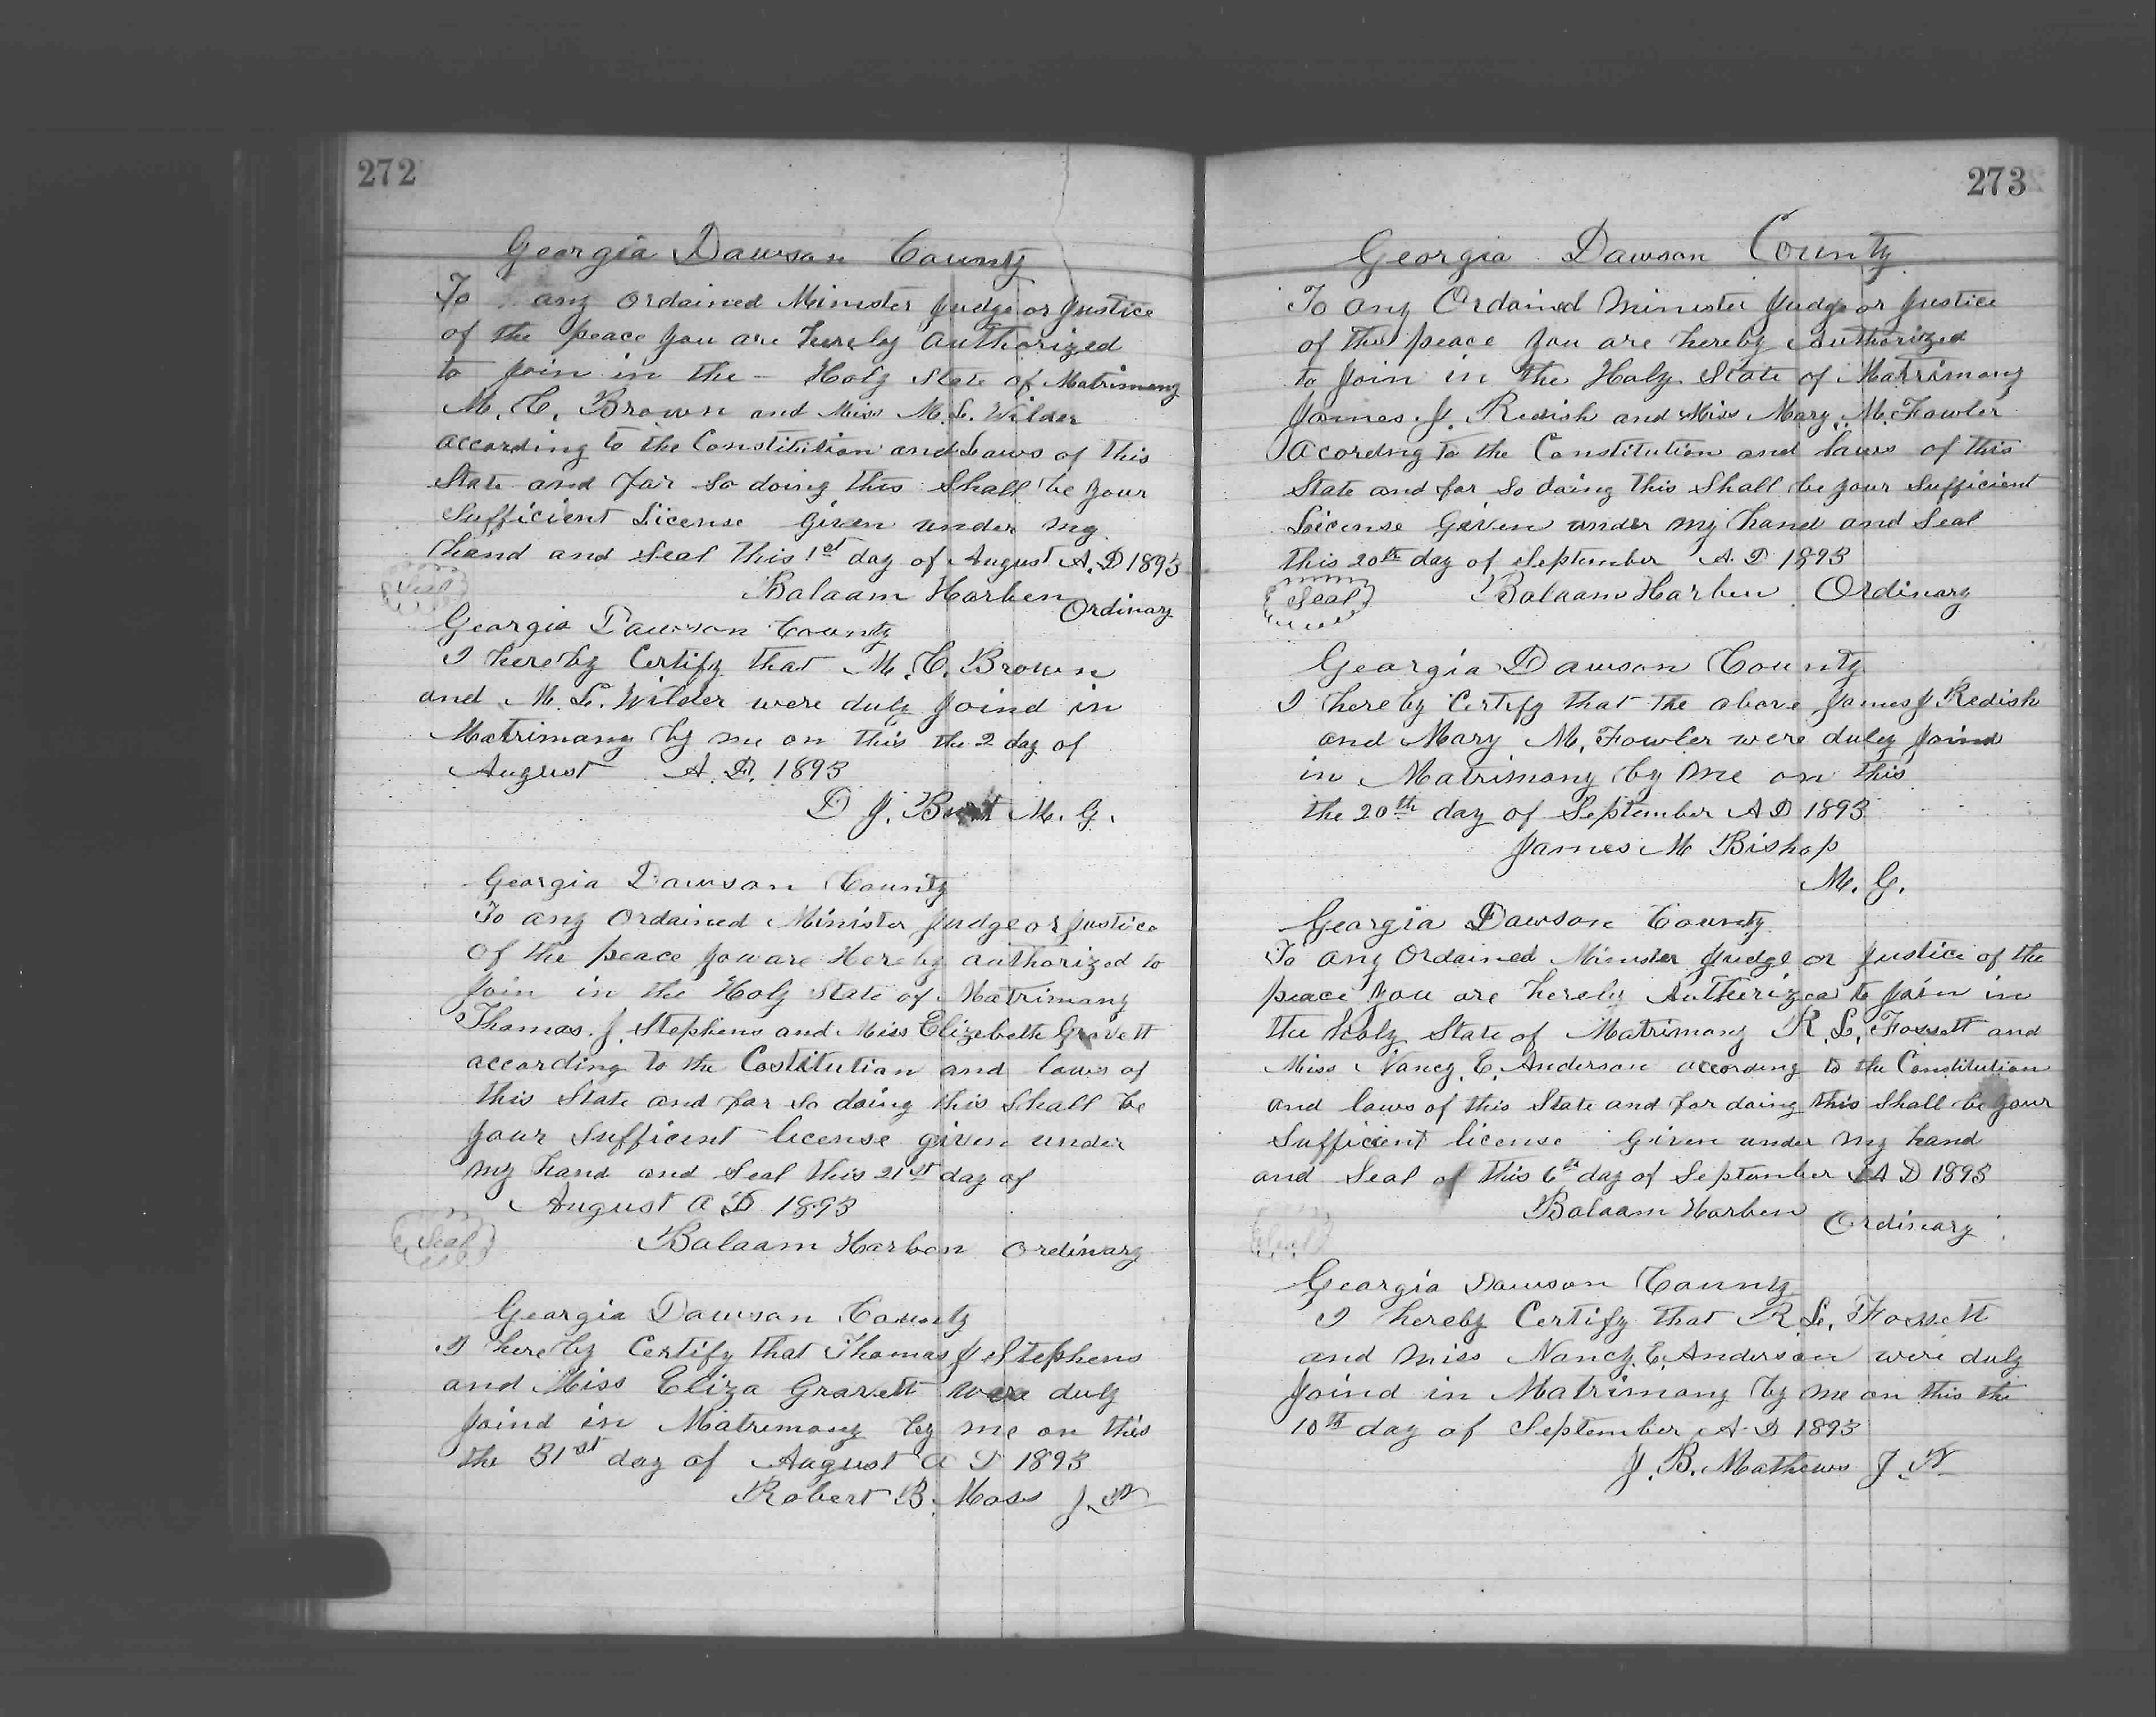 272
Georgia Dawson County
To any Ordained Minister Judge or Justice
of the peace you are hereby Authorized
to Join in the - Holy State of Matrimony
M. C. Brown and Miss M. L. Wilder
according to the Constitution and Laws of this
State and for so doing this Shall be your
Sufficient License given under my
hand and Seal This 1st day of August A. D 1893
Seal
Balaam Harben Ordinary
Georgia Dawson County
I hereby Certify that M. C. Brown
and M. L. Wilder were duly Joind in
Matrimony by me on this the 2 day of
August A. D. 1893
D J. Burt M. G.
Georgia Dawson County
To any Ordained Minister Judge or Justice
of the peace you are Hereby authorized to
Join in the Holy State of Matrimony
Thomas. J. Stephens and Miss Elizebeth Gravett
according to the Costitution and laws of
this State and for so doing this Shall be
your Sufficient license given under
my hand and Seal this 21st day of
August A D 1893
Seal
Balaam Harben Ordinary
Georgia Dawson County
I hereby Certify that Thomas J Stephens
and Miss Eliza Gravett were duly
Joind in Matrimony by me on this
the 31st day of August A D 1893
Robert B. Moss J. P
273
Georgia Dawson County
To any Ordained Minister Judge or Justice
of the peace you are hereby Authorized
to Join in the Holy State of Matrimony
James. J. Redish and Miss Mary M. Fowler
Acording to the Constitution and laws of this
State and for so doing this Shall be your Sufficient
License Given under my hand and Seal
this 20th day of September A. D 1893
Seal
Balaam Harben Ordinary
Georgia Dawson County
I hereby Certify that the above James J Redish
and Mary M. Fowler were duly Joind
in Matrimony by me on this
the 20th day of September A D 1893
James M Bishop
M. G.
Georgia Dawson County
To any Ordained Minister Judge or Justice of the
peace you are hereby Autherized to Join in
the holy State of Matrimony R. L. Fossett and
Miss Nancy. E. Anderson according to the Constitution
and laws of this State and for doing this Shall be your
Sufficient license Given under my hand
and Seal of this 6th day of September A D 1893
Seal
Balaam Harben Ordinary
Georgia Dawson County
I hereby Certify that R L. Fossett
and Miss Nancy. E. Anderson were duly
Joind in Matrimony by me on this the
10th day of September A. D 1893
J. B. Mathews J. P